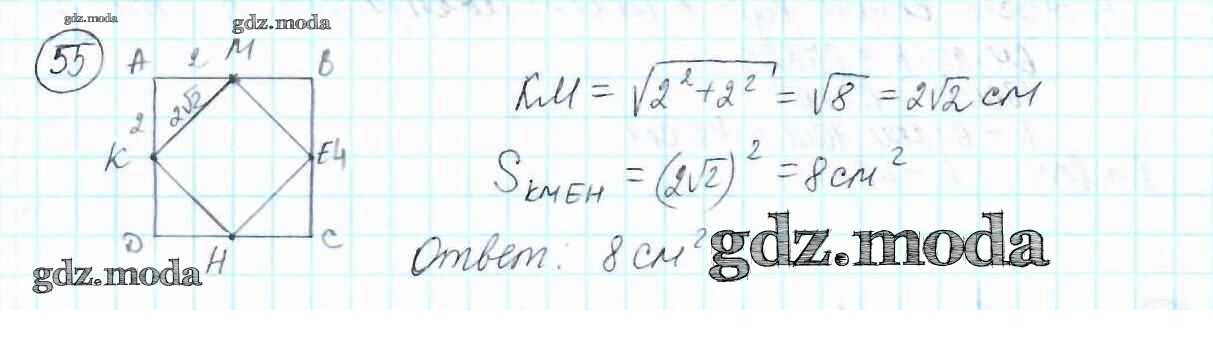 gdz.moda
gdz.moda
55
A 2 M B
2√2
2
K E 4
D H C
KM = √2² + 2² = √8 = 2√2 см
S КМЕН = (2√2)² = 8 см²
Ответ: 8 см²
gdz.moda
gdz.moda